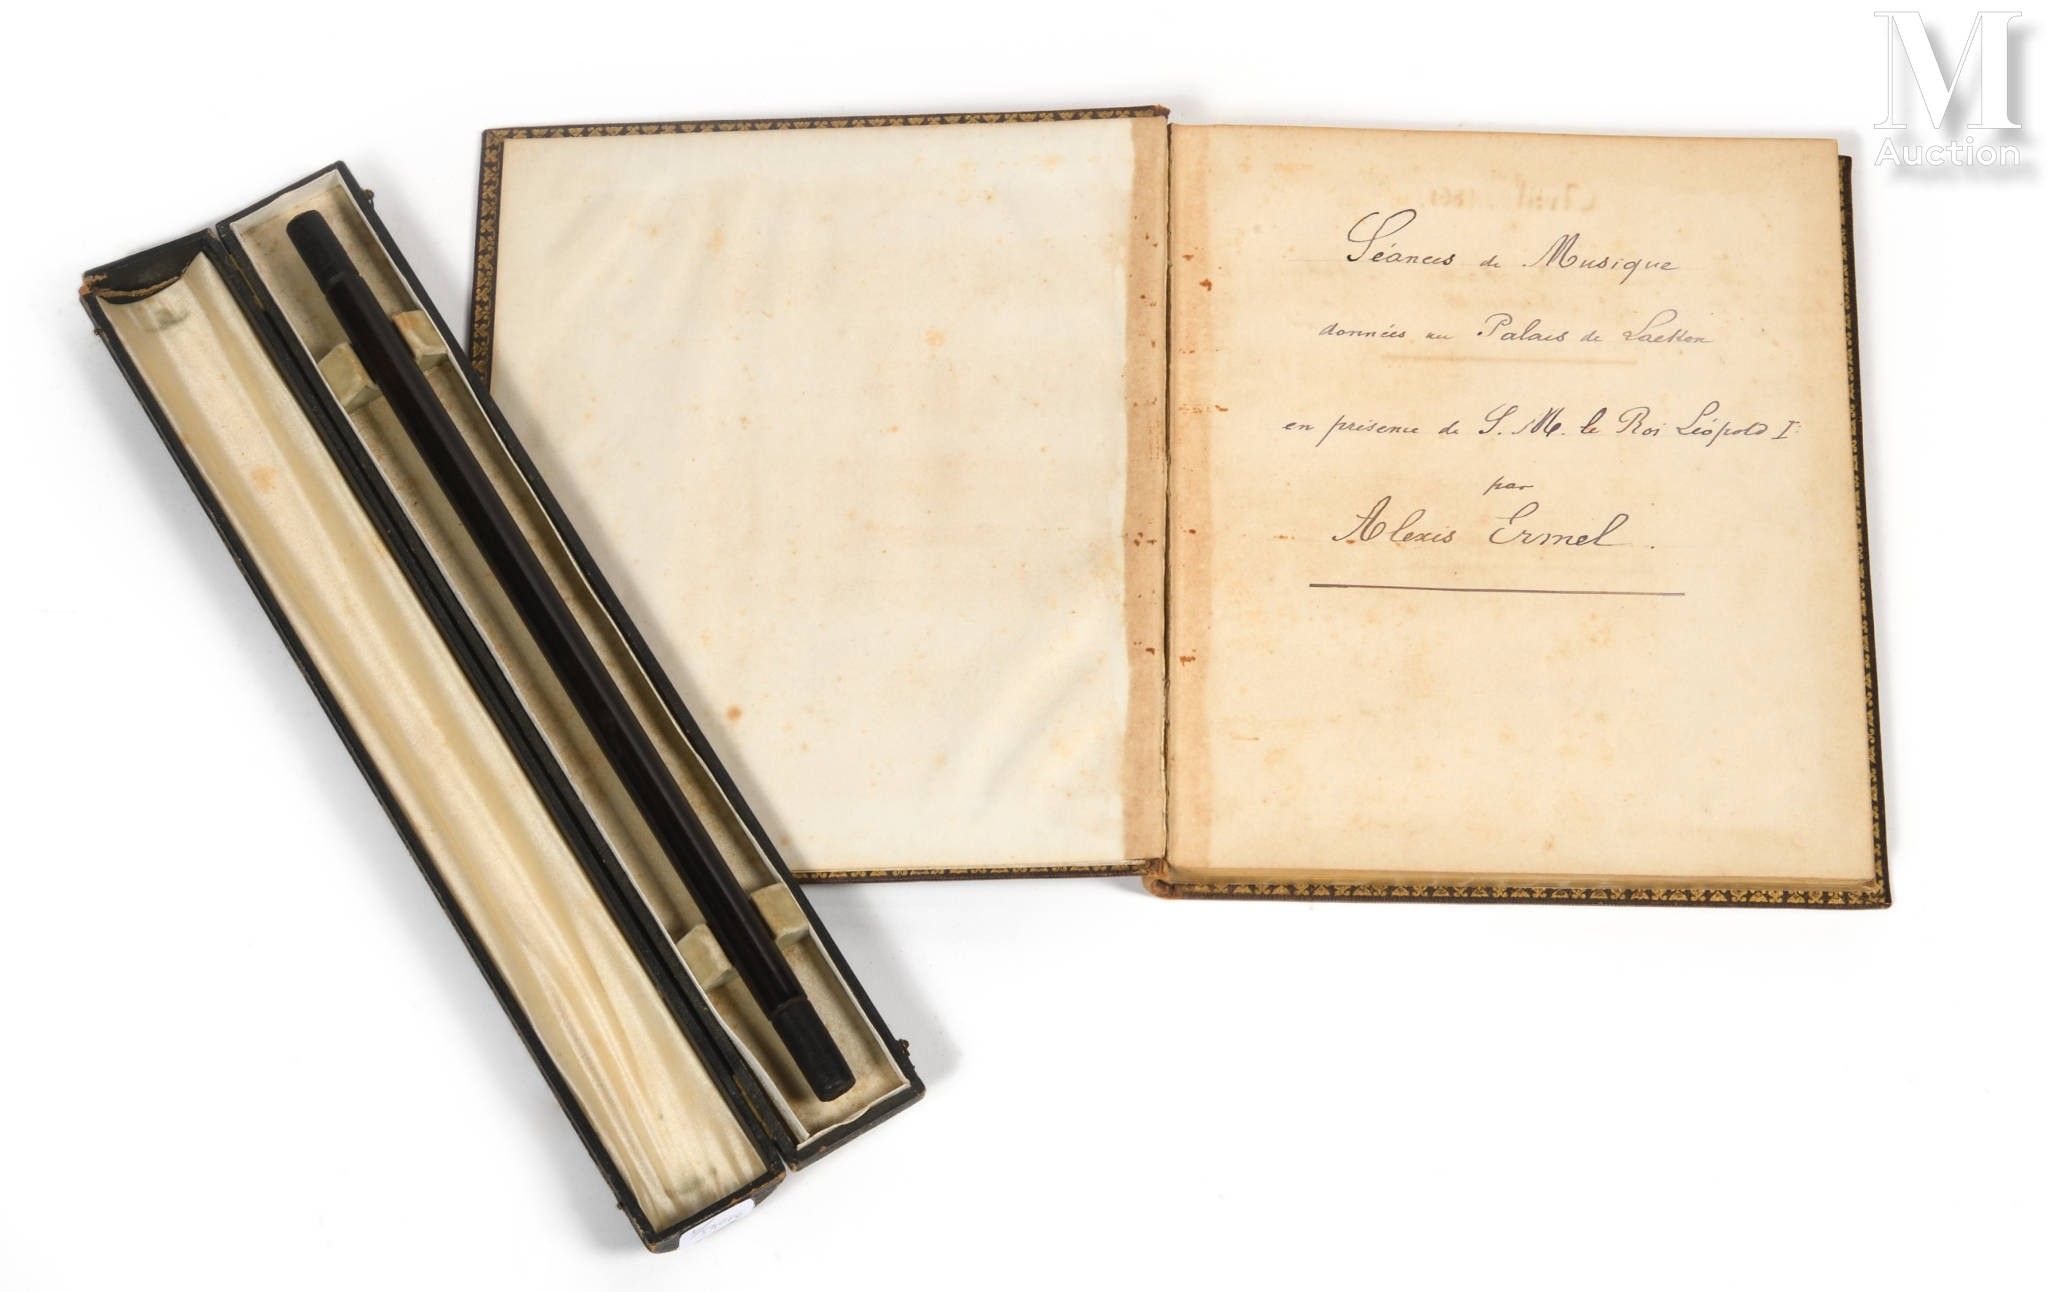 M
Auction
Séances de Musique
données au Palais de Laeken
en présence de S. M. le Roi Léopold I:
par
Alexis Ermel.